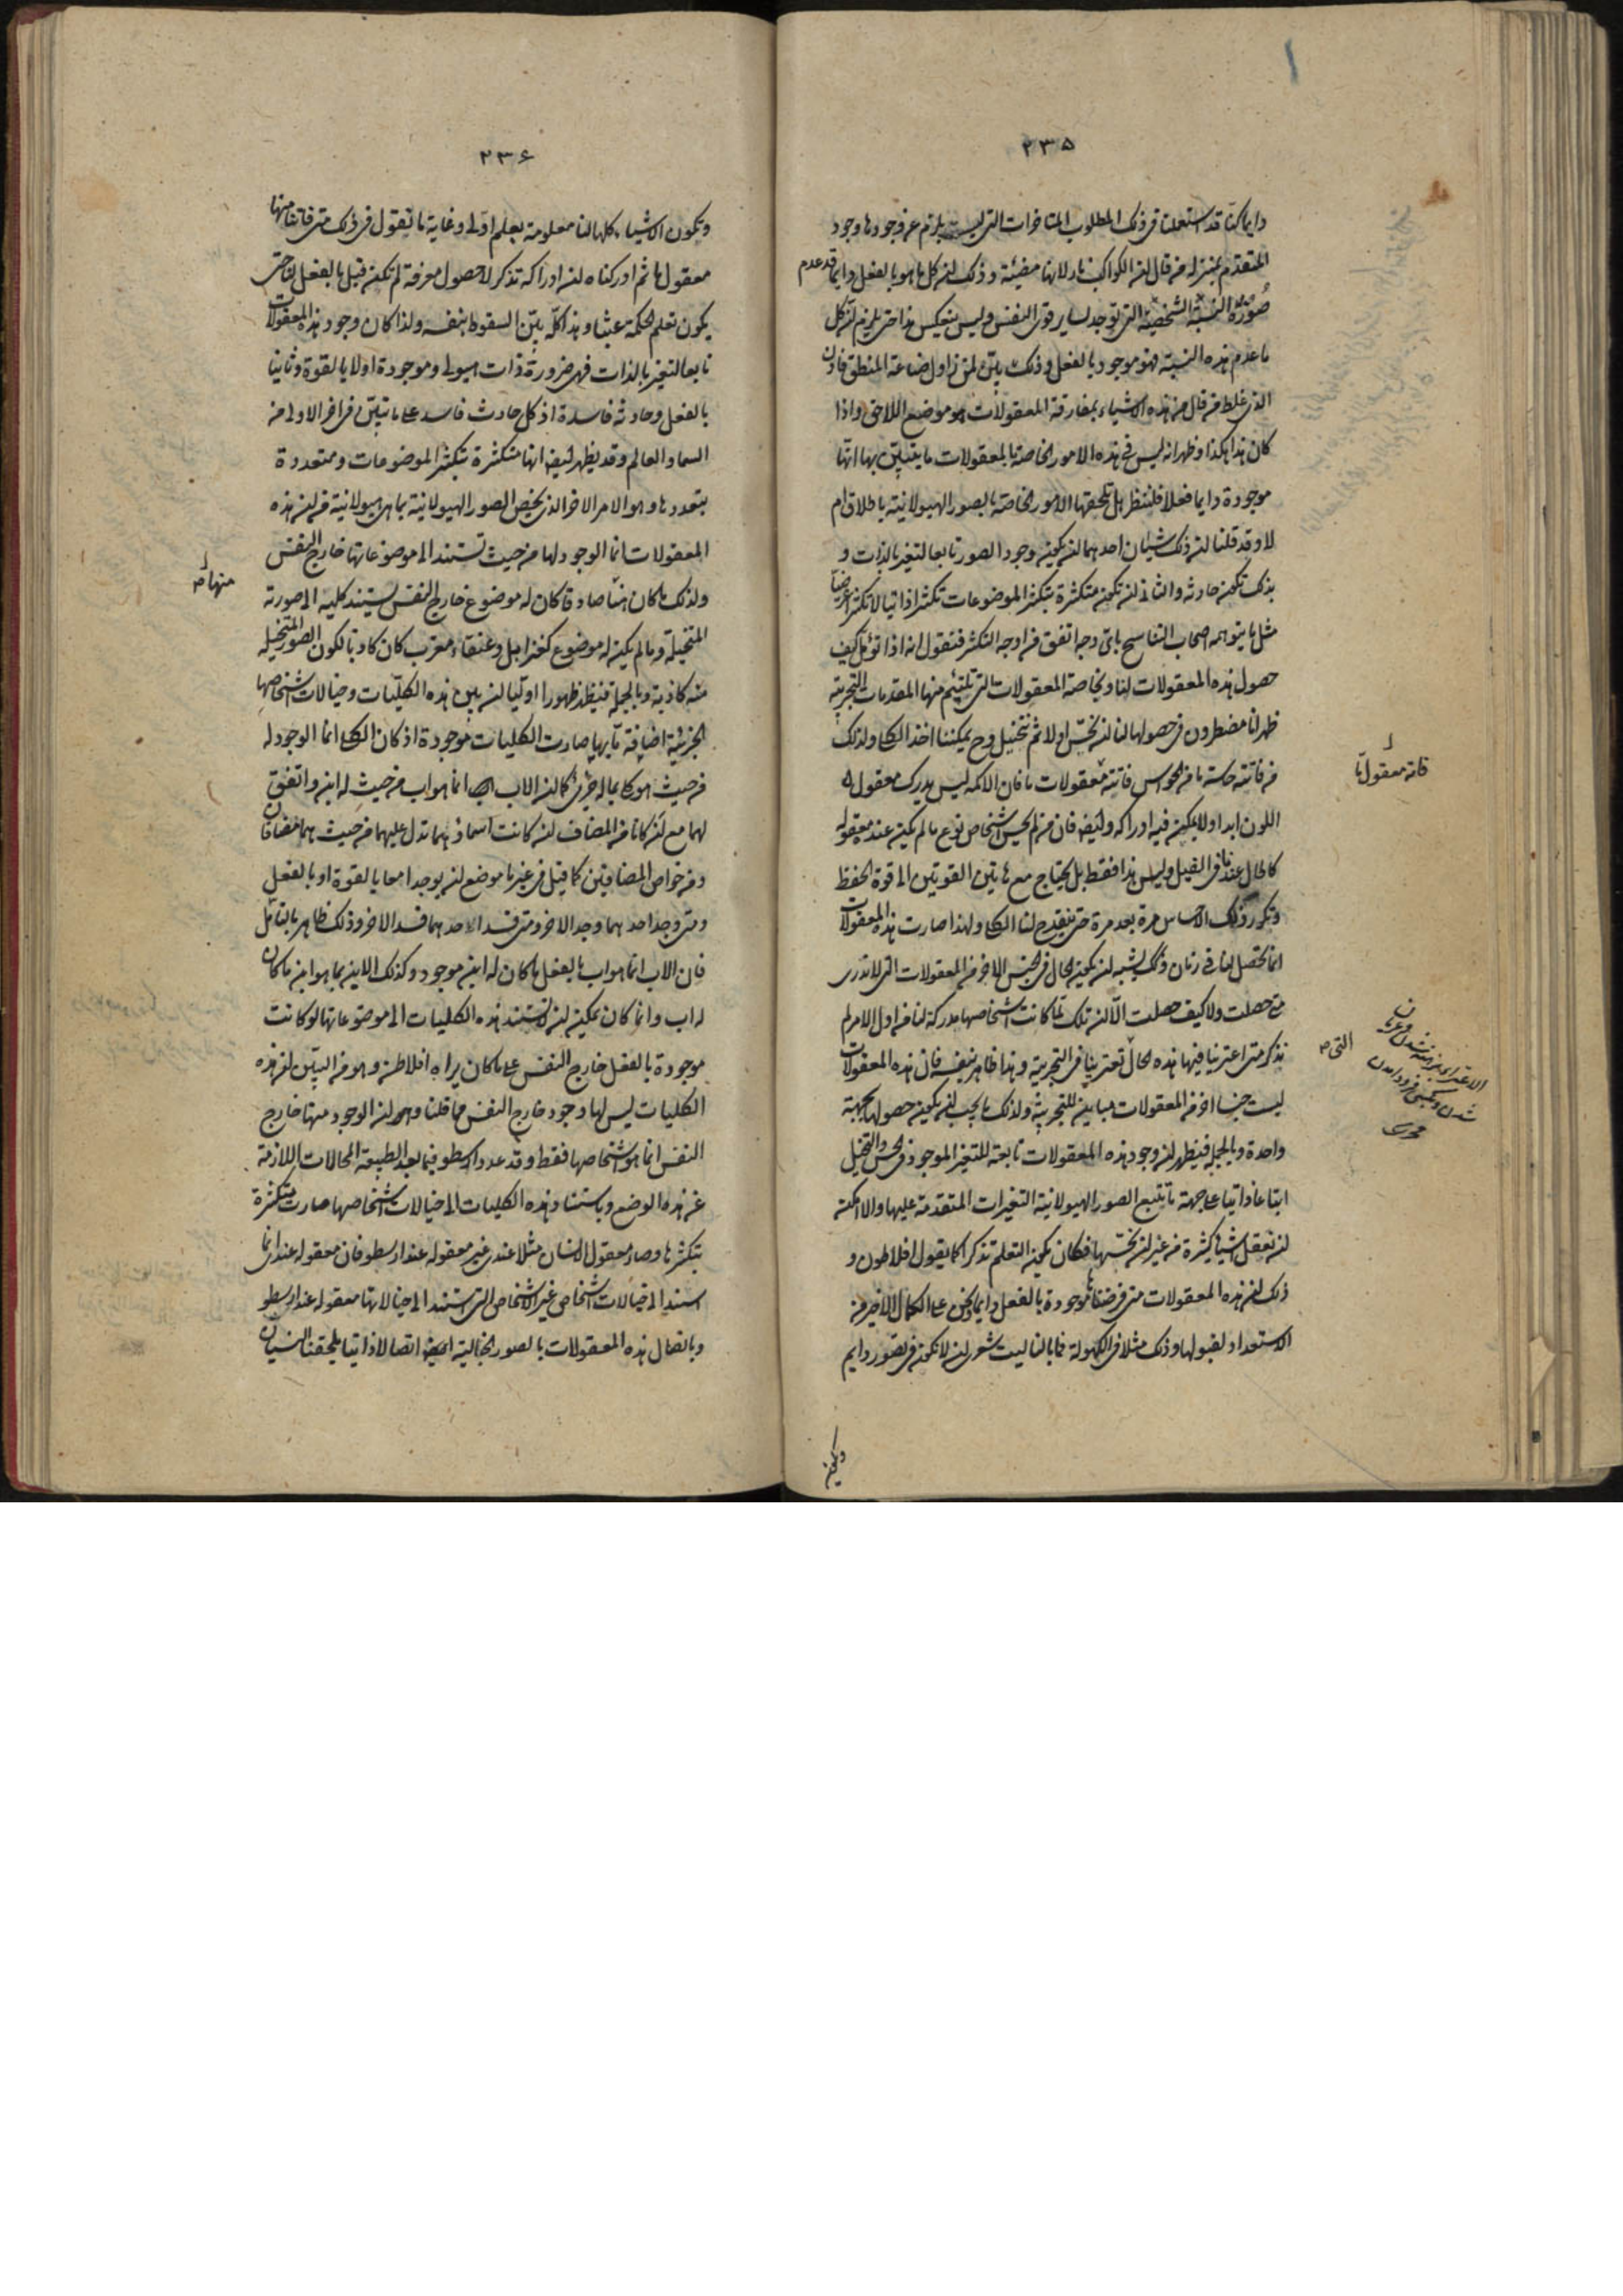 ٢٣٥
دايما كنا قد استعملنا فى ذلك المطلوب المتاخرات التى ليست يلزم عن وجودها وجود
المتقدم بمنزلة من قال ان الكواكب نار لانها مضيئة وذلك ان كل ما هو بالفعل دايما قد عدم
ضرورة هذه النسبة الشخصية التى توجد لساير قوى النفس وليس ينعكس هذا حتى يلزم ان كل
ما عدم هذه النسبة فهو موجود بالفعل وذلك بين لمن زاول صناعة المنطق فاذن
الذى غلط من قال من هذه الاشياء بمفارقة المعقولات هو موضع اللاحق واذا
كان هذا هكذا وظهر انه ليس فى هذه الامور الخاصة بالمعقولات ما يتبين بها انها
موجودة دايما فعلا فلننظر هل تلحقها الامور الخاصة بالصور الهيولانية باطلاق ام
لا وقد قلنا ان ذلك شيئان احدهما ان يكون وجود الصور تابعا لتغير بالذات و
بذلك تكون حادثة والثانى ان تكون متكثرة بتكثر الموضوعات تكثرا ذاتيا لا تكثرا عرضيا
مثل ما يتوهمه اصحاب التناسخ باى وجه اتفق من اوجه التكثر فنقول انه اذا تؤمل كيف
حصول هذه المعقولات لنا وبخاصة المعقولات التى تلتئم منها المقدمات التجربية
ظهر انا مضطرون فى حصولها لنا ان نحس اولا ثم نتخيل وح يمكننا اخذ الكلى ولذلك
من فاتته حاسة ما من الحواس فاتته معقولات ما فان الاكمه ليس يدرك معقول
اللون ابدا ولا يمكن فيه ادراكه وايضا فان من لم يحس اشخاص نوع ما لم يكن عنده معقوله
كالحال عندنا فى الفيل وليس هذا فقط بل يحتاج مع هاتين القوتين الى قوة الحفظ
وتكرر ذلك الاحساس مرة بعد مرة حتى ينقدح لنا الكلى ولهذا صارت هذه المعقولات
انما تحصل لنا فى زمان وذلك يشبه ان يكون الحال فى الجنس الاخر من المعقولات التى لا ندرى
متى حصلت ولا كيف حصلت الا ان تلك لما كانت اشخاصها مدركة لنا من اول الامر لم
نذكر متى اعترينا فيها هذه الحال تعترينا فى التجربة وهذا ظاهر بنفسه فان هذه المعقولات
ليست جنسا اخر من المعقولات مباينة للتجربية ولذلك ما يجب ان يكون حصولها بجهة
واحدة وبالجملة فيظهر ان وجود هذه المعقولات تابعة للتغير الموجود فى الحس والتخيل
اتباعا ذاتيا على جهة ما تتبع الصور الهيولانية التغيرات المتقدمة عليها والا امكن
ان نعقل اشياء كثيرة من غير ان نحسها فكان يكون التعلم تذكرا كما يقول افلاطون و
ذلك ان هذه المعقولات متى فرضناها موجودة بالفعل دايما ونحن على الكمال الاخير من
الاستعداد لقبولها وذلك مثلا فى الكهولة فما بالنا ليت شعرى ان لا نكون فى تصور دايم
وتكون
فاته معقول ما
التى
٢٣٦
وتكون الاشياء كلها لنا معلومة بعلم اولى وغاية ما نقول فى ذلك متى فاتنا منها
معقول ما ثم ادركناه ان ادراكه تذكر لا حصول معرفة لم تكن قبل بالفعل لنا حتى
يكون تعلم الحكمة عبثا وهذا كله بين السقوط بنفسه ولذا كان وجود هذه المعقولات
تابعا لتغير بالذات فهى ضرورة ذات هيولى وموجودة اولا بالقوة وثانيا
بالفعل وحادثة فاسدة اذ كل حادث فاسد على ما تبين فى اخر الاولى من
السماء والعالم وقد يظهر ايضا انها متكثرة بتكثر الموضوعات ومتعددة
بتعددها وهو الامر الاخر الذى يخص الصور الهيولانية بما هى هيولانية من ان هذه
المعقولات انما الوجود لها من حيث تستند الى موضوعاتها خارج النفس
ولذلك ما كان منها صادقا كان له موضوع خارج النفس يستند كليه الى صورته
المتخيلة وما لم يكن له موضوع كعنز ايل وعنقاء مغرب كان كاذبا لكون الصور المتخيلة
منه كاذبة وبالجملة فيظهر ظهورا اوليا ان بين هذه الكليات وخيالات اشخاصها
الجزئية اضافة ما بها صارت الكليات موجودة اذ كان الكلى انما الوجود له
من حيث هو كلى بما له جزئى كما ان الاب انما هو اب من حيث له ابن واتفق
لهما مع ان كانا من المضاف ان كانت اسماؤهما تدل عليهما من حيث هما مضافان
ومن خواص المضافين كما قيل فى غير ما موضع ان يوجدا معا بالقوة او بالفعل
ومتى وجد احدهما وجد الاخر ومتى فسد احدهما فسد الاخر وذلك ظاهر بالتامل
فان الاب انما هو اب بالفعل ما كان له ابن موجود وكذلك الابن بما هو ابن ما كان
له اب وانما كان يمكن ان لا تستند هذه الكليات الى موضوعاتها لو كانت
موجودة بالفعل خارج النفس على ما كان يراه افلاطن وهو من البين ان هذه
الكليات ليس لها وجود خارج النفس مما قلنا وهو ان الوجود منها خارج
النفس انما هو اشخاصها فقط وقد عدد ارسطو فيما بعد الطبيعة المحالات اللازمة
عن هذه الوضع وباستناد هذه الكليات الى خيالات اشخاصها صارت متكثرة
بتكثرها وصار معقول الانسان مثلا عندى غير معقوله عند ارسطو فان معقوله عندى انما
استند الى خيالات اشخاص غير الاشخاص التى استند الى خيالاتها معقوله عند ارسطو
وباتصال هذه المعقولات بالصور الخيالية ايضا اتصالا ذاتيا يلحقنا النسيان
منها